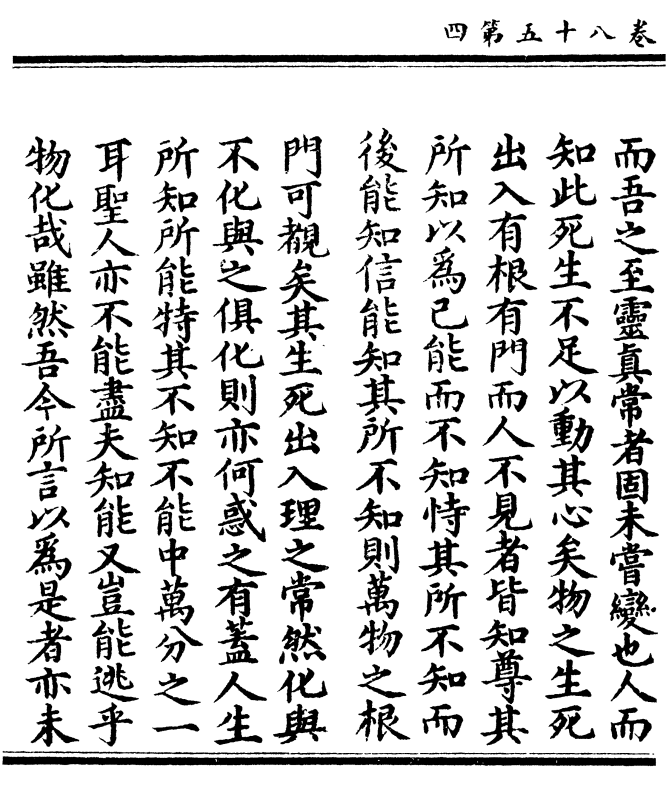 卷八十五第四
而吾之至靈眞常者固未嘗變也人而
知此死生不足以動其心矣物之生死
出入有根有門而人不見者皆知尊其
所知以爲已能而不知恃其所不知而
後能知信能知其所不知則萬物之根
門可覩矣其生死出入理之常然化與
不化與之俱化則亦何惑之有蓋人生
所知所能特其不知不能中萬分之一
耳聖人亦不能盡夫知能又豈能逃乎
物化哉雖然吾今所言以爲是者亦未